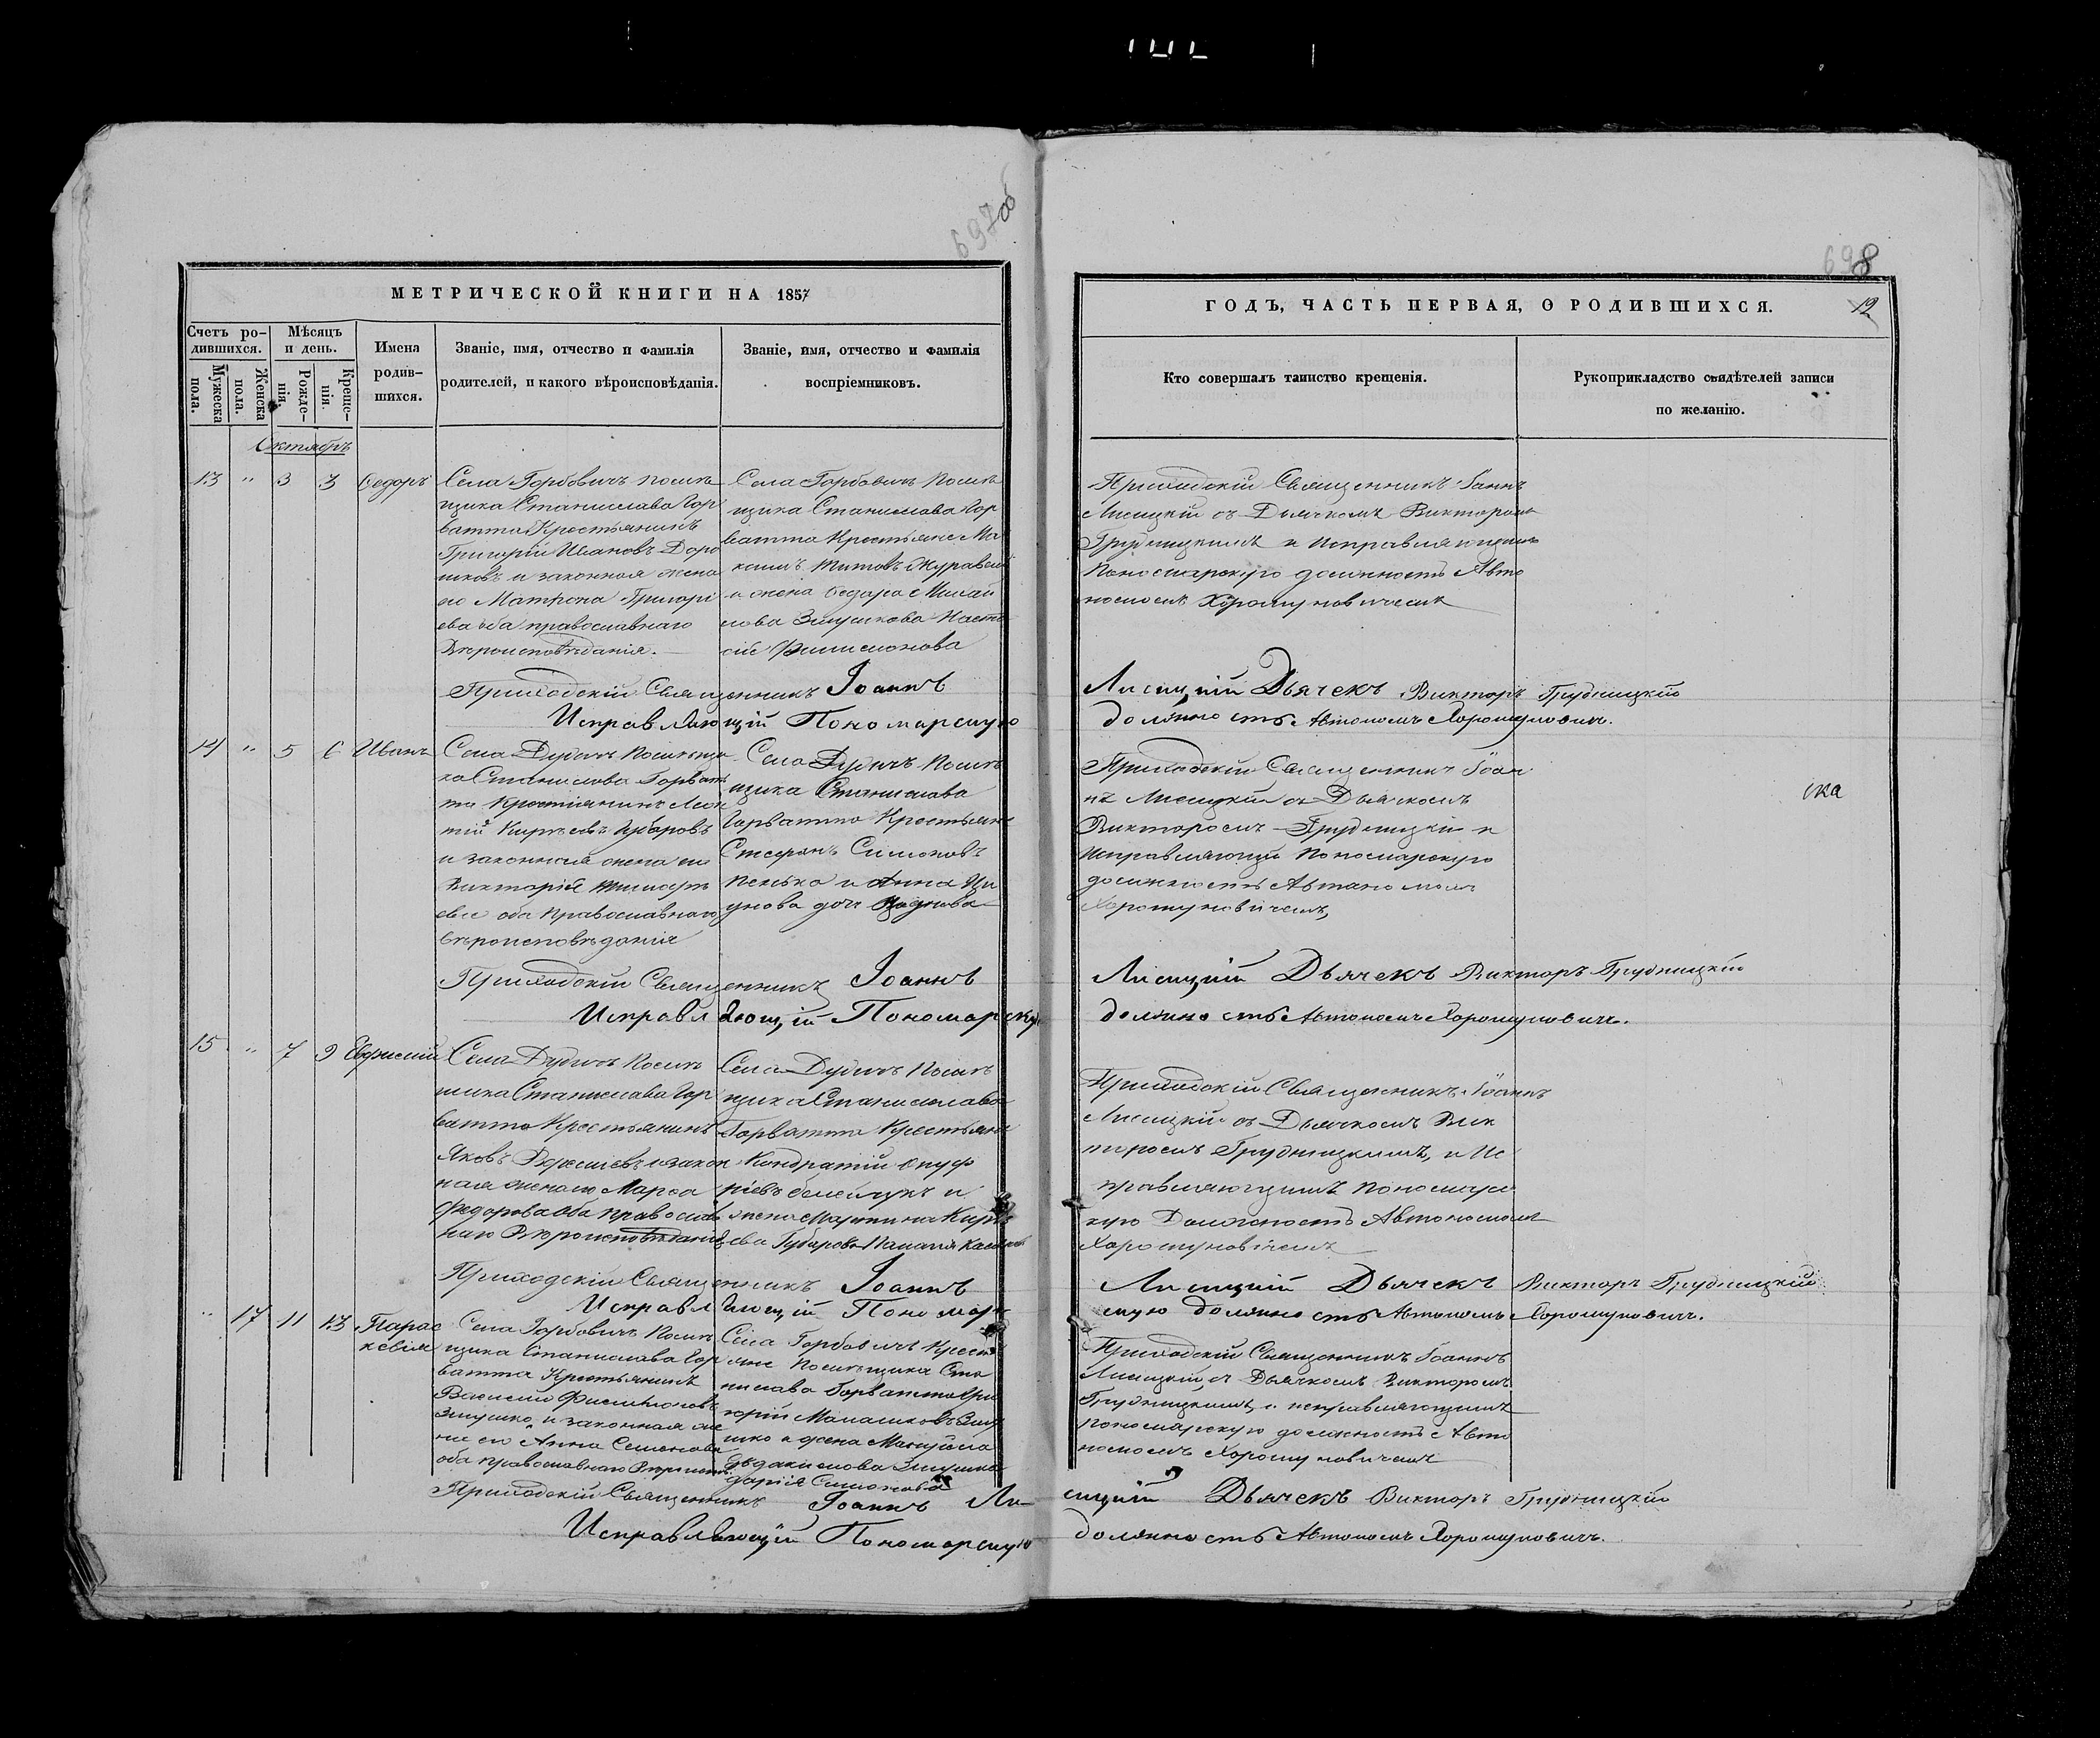 697об
698
МЕТРИЧЕСКОЙ КНИГИ НА 1857
ГОДЪ, ЧАСТЬ ПЕРВАЯ, О РОДИВШИХСЯ.
12
Счетъ ро-
дившихся.
Мужеска
пола.
Женска
пола.
Мѣсяцъ
и день.
Рожде-
нія.
Креще-
нія.
Имена
родив-
шихся.
Званіе, имя, отчество и фамилія
родителей, и какого вѣроисповѣданія.
Званіе, имя, отчество и фамилія
воспріемниковъ.
Кто совершалъ таинство крещенія.
Рукоприкладство свидѣтелей записи
по желанію.
Октябрь
13 " 3 3 Ѳедоръ
Села Горбовичъ помѣ
щика Станислава Гор
ватта Крестьянинъ
Григорій Ивановъ
и законная жена
его Матрона Григорі
ева оба православнаго
Вѣроисповѣданія.
Села Горбовичъ помѣ
щика Станислава Гор
ватта Крестьяне Ма
Титовъ Журавель
и жена
Приходскій Священникъ Іоаннъ
Лисицкій съ Дьячкомъ Викторомъ
Грудницкимъ и Исправляющимъ
Пономарскую должность Авто
номомъ Хоромуновичемъ
Приходскій Священникъ Іоаннъ Лисицкій Дьячекъ Викторъ Грудницкій
Исправляющій Пономарскую должность Автономъ Хоромуновичъ.
14 " 5 6 Иванъ
Села Дудичъ помѣщи
ка Станислава Горват
та Крестьянинъ
и законная жена его
Викторія
ева оба Православнаго
вѣроисповѣданія
Села Дудичъ помѣ
щика Станислава
Горватта Крестьяне
Стефанъ Симоновъ
и Анна
Приходскій Священникъ Іоан
нъ Лисицкій съ Дьячкомъ
Викторомъ Грудницкій и
Исправляющій Пономарскую
должность Автономомъ
Хоромуновичемъ,
ска
Приходскій Священникъ Іоаннъ Лисицкій Дьячекъ Викторъ Грудницкій
Исправляющій Пономарскую должность Автономъ Хоромуновичъ.
15 " 7 9 Евфимій
Села Дудичъ помѣ
щика Станислава Гор
ватта Крестьянинъ
Яковъ и закон
ная жена его Марѳа
Федорова оба православ
наго Вѣроисповѣданія
Села Дудичъ помѣ
щика Станислава
Горватта Крестьяне
Кондратій Ануф
ріевъ и
жена
Приходскій Священникъ Іоаннъ
Лисицкій съ Дьячкомъ Вик
торомъ Грудницкимъ, и Ис
правляющимъ Пономарс
кую Должность Автономомъ
Хоромуновичемъ
Приходскій Священникъ Іоаннъ Лисицкій Дьячекъ Викторъ Грудницкій
Исправляющій Пономарскую должность Автономъ Хоромуновичъ.
" 17 11 13 Парас
кевія
Села Горбовичъ помѣ
щика Станислава Гор
ватта Крестьянинъ
Василій Филимоновъ
Змушко, и законная же
на его Анна Семенова
оба православнаго
Села Горбовичъ Кресть
яне Помѣщика Ста
нислава Горватта Гри
горій
и жена
Дарія Симонова
Приходскій Священникъ Іоаннъ
Лисицкій съ Дьячкомъ Викторомъ
Грудницкимъ, и исправляющимъ
пономарскую должность Авто
номомъ Хоромуновичемъ
Приходскій Священникъ Іоаннъ Лисицкій Дьячекъ Викторъ Грудницкій
Исправляющій Пономарскую должность Автономъ Хоромуновичъ.